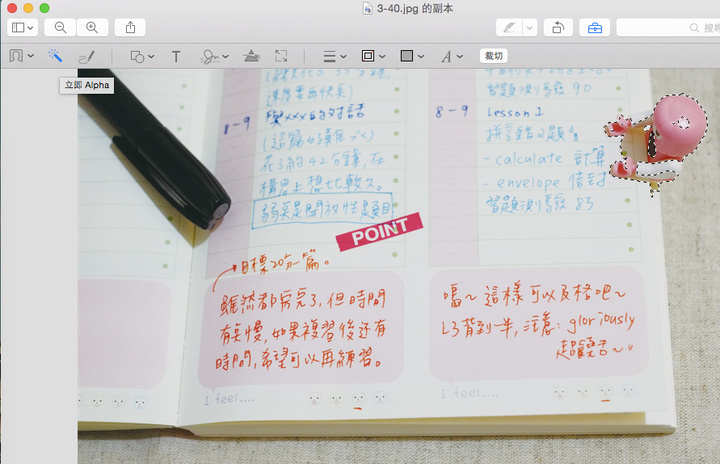 3-40.jpg 的副本
搜尋
T
A
裁切
立即 Alpha
速度要再快ㄜ
8-9 與xxx的對話
花了約42分鐘,在
構思上想比較久。
弱點是開放性題目
POINT
目標20分一篇。
雖然都寫完了,但時間
有點慢,如果複習後還有
時間,希望可以再練習。
I feel....
習題測驗 90
8-9 Lesson 1
拼字錯2題
- calculate 計算
- envelope 信封
習題測驗 83
嗚~這樣可以及格吧~
L3背到一半,注意: gloriously
超饒舌~。
I feel....